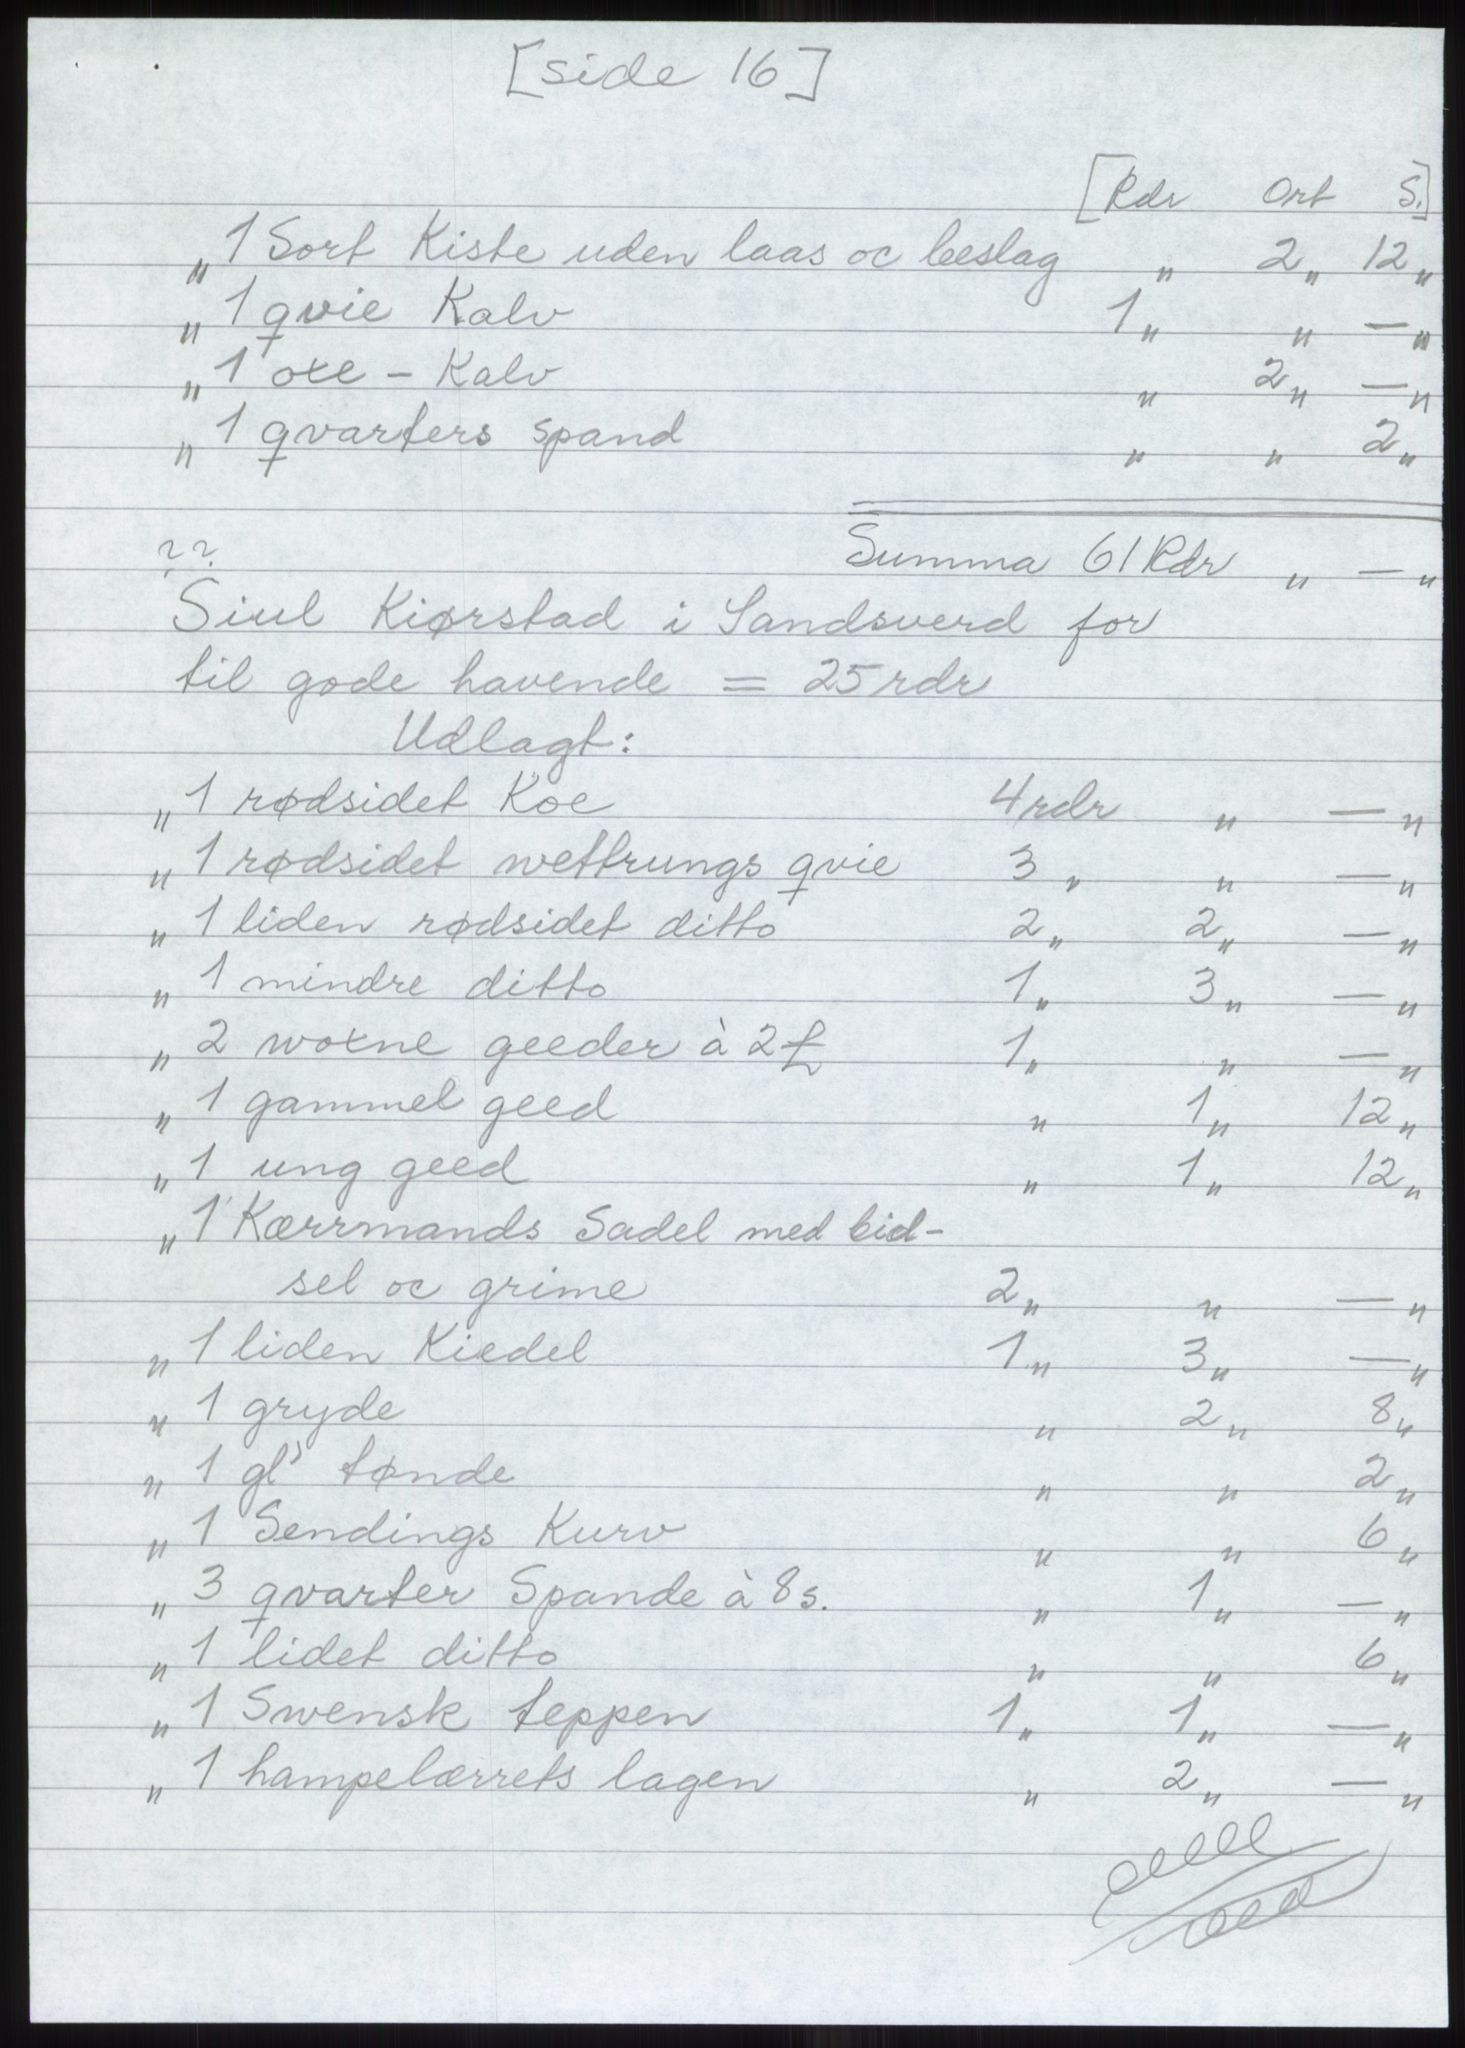 [side 16]
[Rdr Ort S.]
„ 1 Sort Kiste uden laas oc beslag „ 2„ 12„
„ 1 qvie Kalv 1„ „ —„
„ 1 oxe - Kalv „ 2„ —„
„ 1 qvarters spand „ „ 2„
Summa 61 Rdr „ — „
??
Siul Kiørstad i Sandsverd for
til gode havende = 25 rdr
Udlagt:
„ 1 rødsidet Koe 4 rdr „ — „
„ 1 rødsidet wettrungs qvie 3 „ „ — „
„ 1 liden rødsidet ditto 2„ 2„ — „
„ 1 mindre ditto 1„ 3„ — „
„ 2 woxne geeder à 2 £ 1„ „ — „
„ 1 gammel geed „ 1„ 12„
„ 1 ung geed „ 1„ 12„
„ 1 Kærrmands Sadel med bid-
sel oc grime 2„ „ — „
„ 1 liden Kiedel 1„ 3„ — „
„ 1 gryde „ 2„ 8„
„ 1 gl' tønde „ „ 2„
„ 1 Sendings Kurv „ „ 6„
„ 3 qvarter Spande à 8 s. „ 1„ — „
„ 1 lidet ditto „ „ 6„
„ 1 Swensk teppen 1„ 1„ — „
„ 1 hampelærrets lagen „ 2„ — „